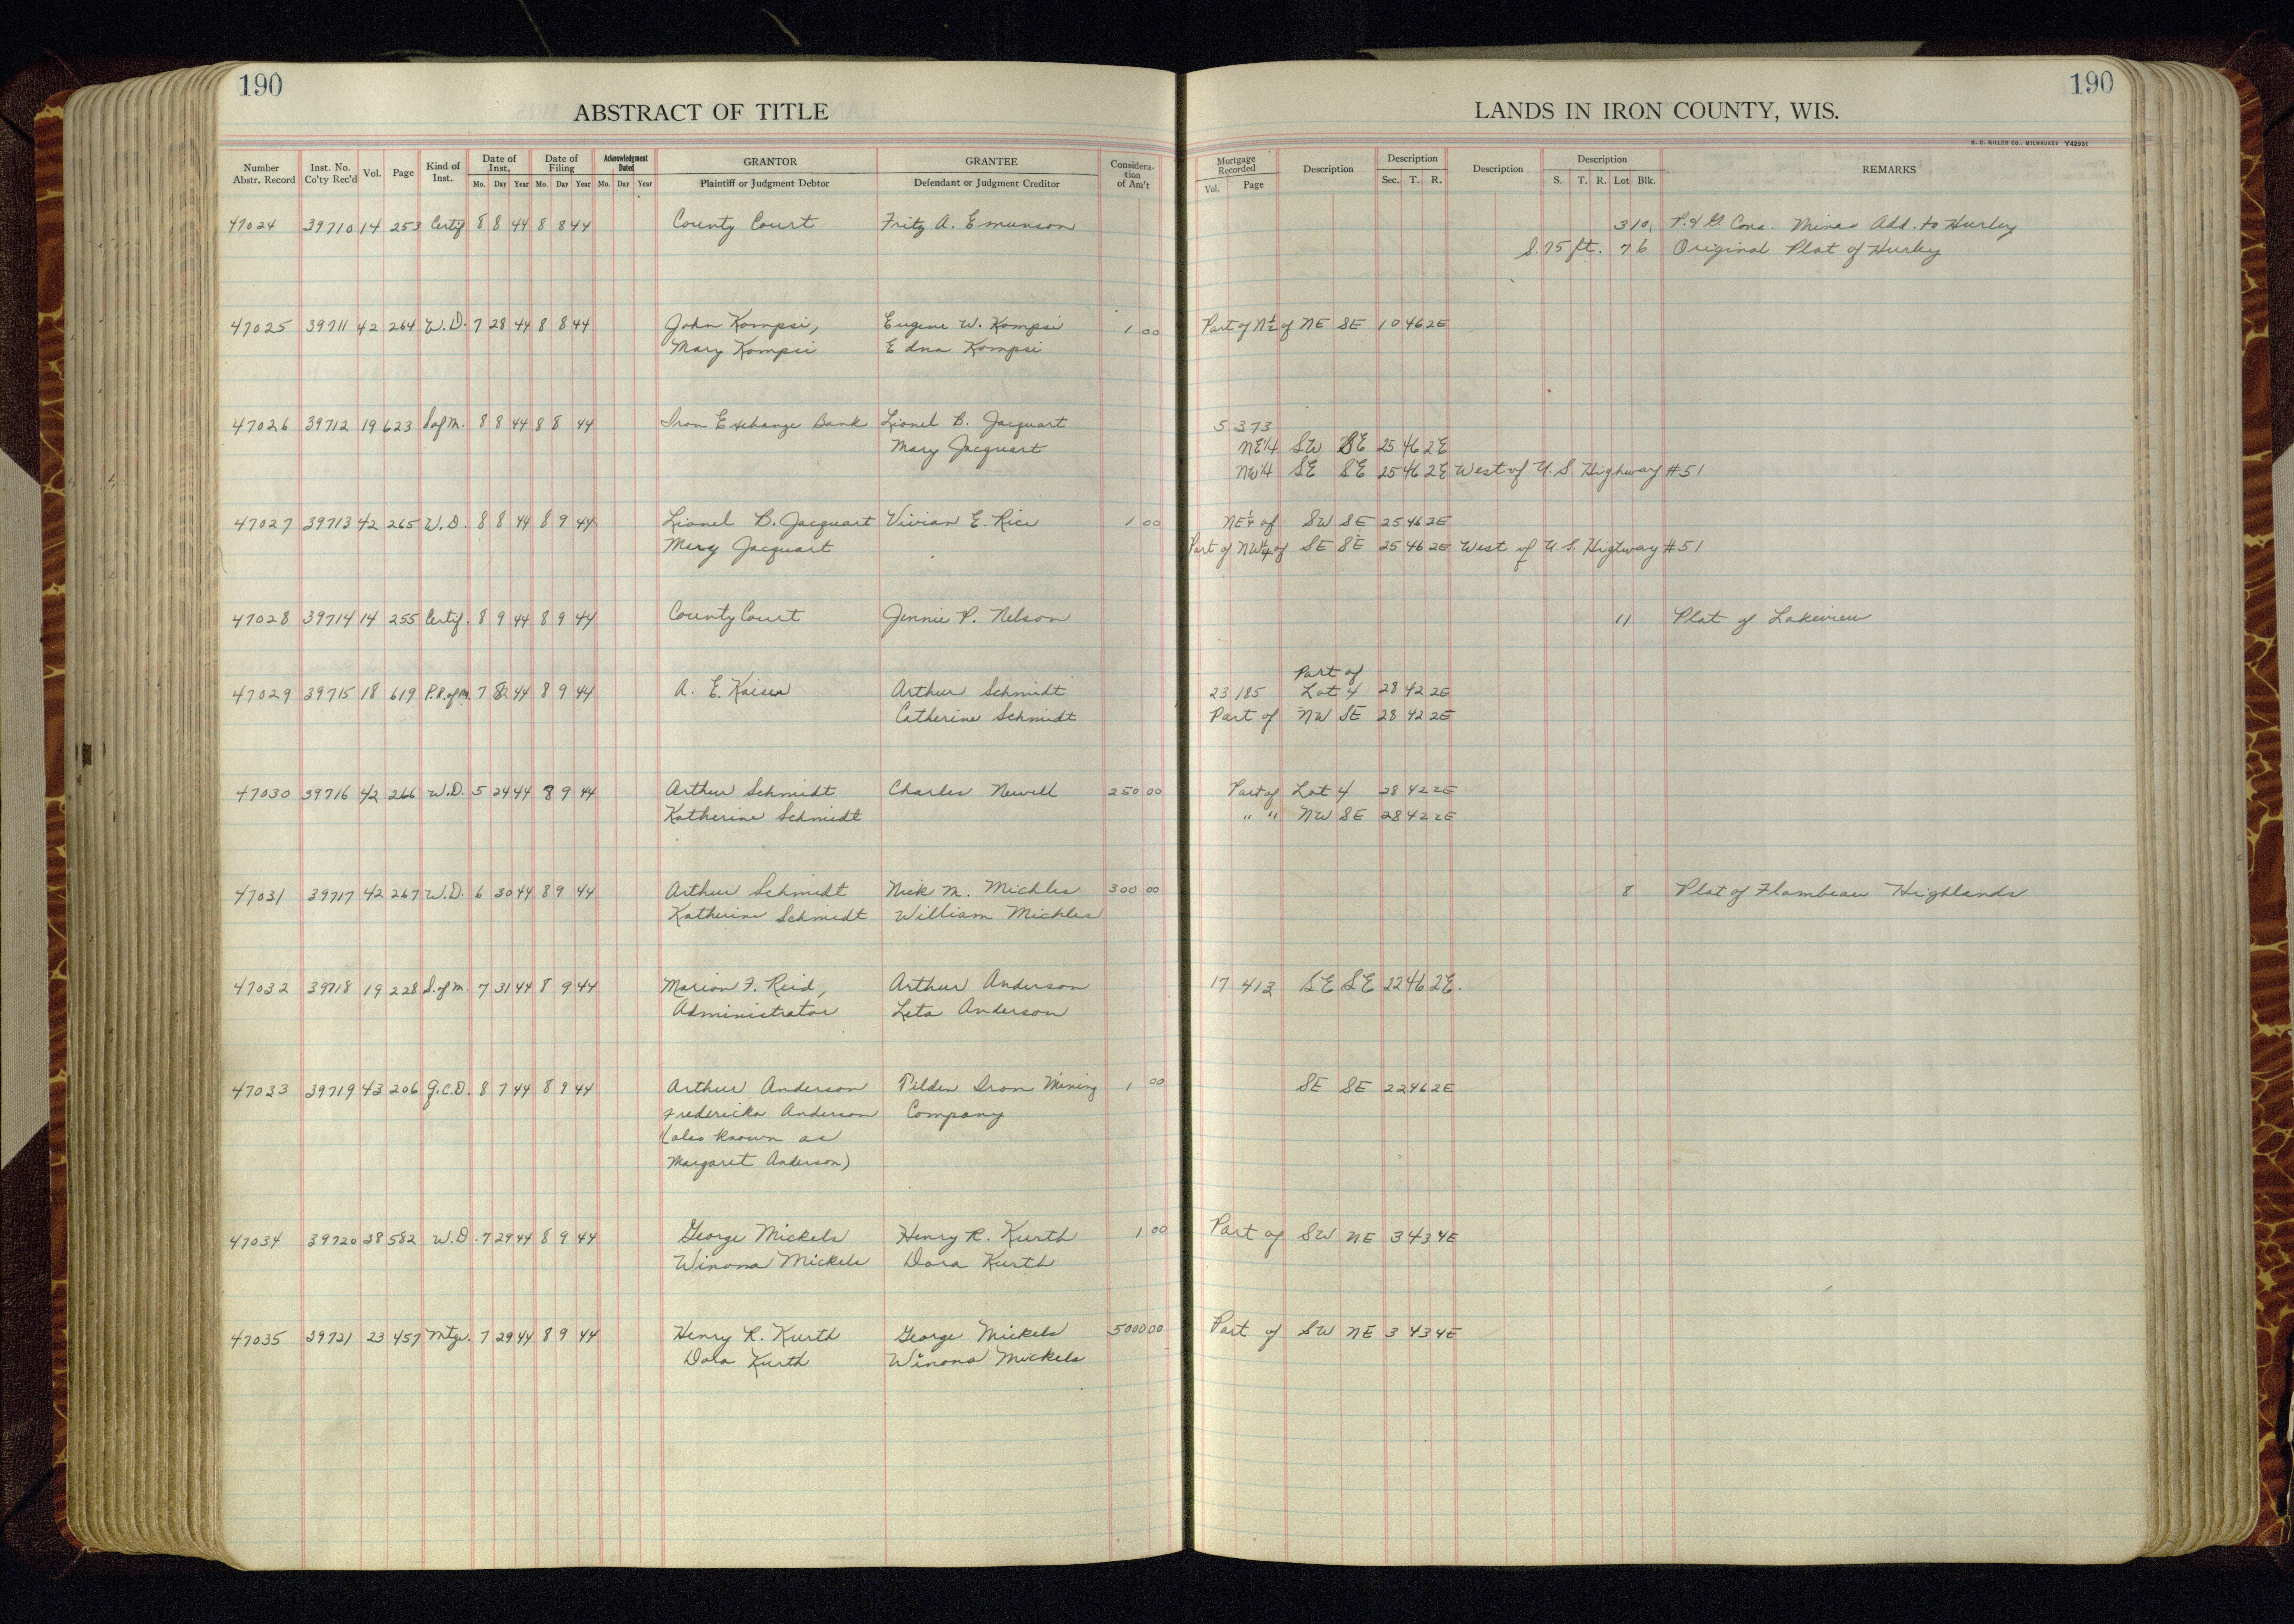 190
190
ABSTRACT OF TITLE
LANDS IN IRON COUNTY, WIS.
H. C. MILLER CO., MILWAUKEE Y42931
Number Abstr. Record Inst. No. Co'ty Rec'd Vol. Page Kind of Inst. Date of Inst. Mo. Day Year Date of Filing Mo. Day Year Acknowledgment Dated Mo. Day Year GRANTOR Plaintiff or Judgment Debtor GRANTEE Defendant or Judgment Creditor Considera-tion of Am't Mortgage Recorded Vol. Page Description Description Sec. T. R. Description Description S. T. R. Lot Blk. REMARKS
47024 39710 14 253 Certif 8 8 44 8 8 44 County Court Fritz A. Emunson 3 10 P. & G. Cons. Mines Add. to Hurley
S. 75 ft. 7 6 Original Plat of Hurley
47025 39711 42 264 W.D. 7 28 44 8 8 44 John Kompsi, Eugene W. Kompsi 1 00 Part of N½ of NE SE 10 46 2E
Mary Kompsi Edna Kompsi
47026 39712 19 623 S of M. 8 8 44 8 8 44 Iron Exchange Bank Lionel B. Jacquart 5 373
Mary Jacquart NE¼ SW SE 25 46 2E
NW¼ SE SE 25 46 2E West of U.S. Highway #51
47027 39713 42 265 W.D. 8 8 44 8 9 44 Lionel B. Jacquart Vivian E. Rice 1 00 NE¼ of SW SE 25 46 2E
Mary Jacquart Part of NW¼ of SE SE 25 46 2E West of U.S. Higtway #51
47028 39714 14 255 Certif. 8 9 44 8 9 44 County Court Jennie P. Nelson 11 Plat of Lakeview
Part of
47029 39715 18 619 P.R. of M. 7 44 8 9 44 A. E. Kaiser Arthur Schmidt 23 185 Lot 4 28 42 2E
Catherine Schmidt Part of NW SE 28 42 2E
47030 39716 42 266 W.D. 5 24 44 8 9 44 Arthur Schmidt Charles Newell 250 00 Part of Lot 4 28 42 2E
Katherine Schmidt " " NW SE 28 42 2E
47031 39717 42 267 W.D. 6 30 44 8 9 44 Arthur Schmidt Nick M. Michles 300 00 8 Plat of Flambeau Highlands
Katherine Schmidt William Michles
47032 39718 19 228 S. of M. 7 31 44 8 9 44 Marion F. Reid, Arthur Anderson 17 413 SE SE 22 46 2E.
Administrator Leta Anderson
47033 39719 43 206 Q.C.D. 8 7 44 8 9 44 Arthur Anderson Tilden Iron Mining 1 00 SE SE 22 46 2E
Fredericka Anderson Company
(also known as
Margaret Anderson)
47034 39720 38 582 W.D. 7 29 44 8 9 44 George Mickels Henry R. Kurth 1 00 Part of SW NE 3 43 4E
Winona Mickels Dora Kurth
47035 39721 23 457 Mtge. 7 29 44 8 9 44 Henry R. Kurth George Mickels 5000 00 Part of SW NE 3 43 4E
Dora Kurth Winona Mickels